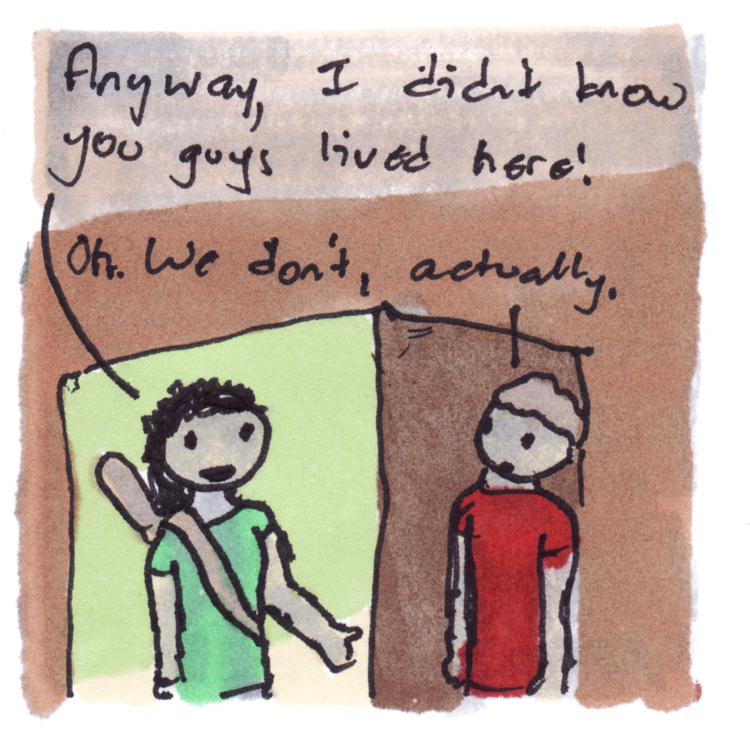 Anyway, I didn't know
you guys lived here!
Oh. We don't, actually.